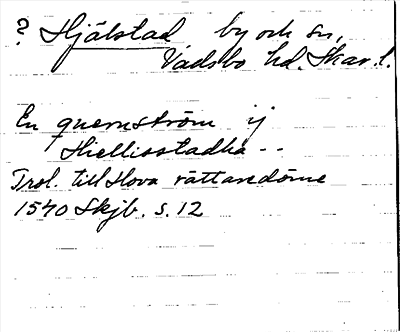 ? Hjälstad by och sn,
Vadsbo hd. Skar. l.
En quernström ij
Hiellisstadha --
Trol. till Hova rättaredöme
1540 Skjb. s. 12